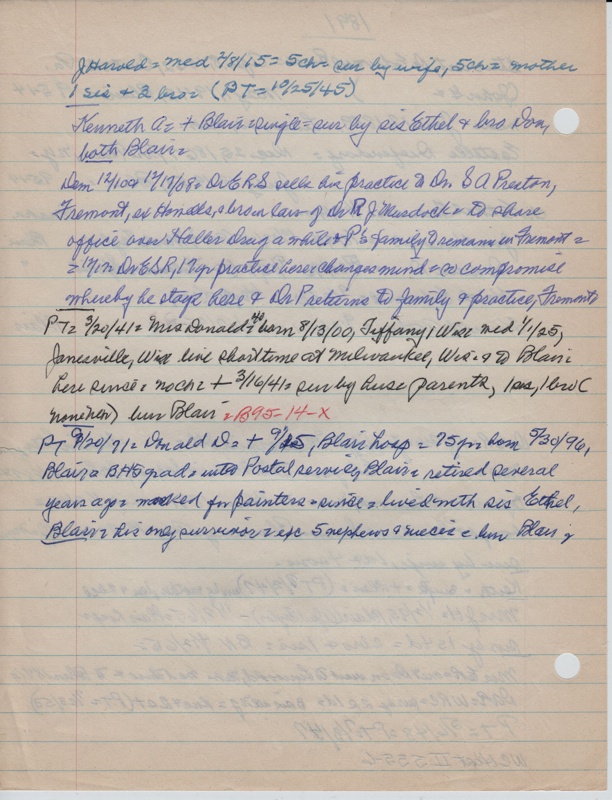 J Harold = med 2/8/15 = 5ch = sur by wife, 5ch = mother
1 sis + 2 bro = (PT = 10/25/45)
Kenneth A = + Blair = single = sur by sis Ethel & bro Don,
both Blair =
Dem 12/10 & 12/17/08 = Dr E R S sells his practice to Dr. S A Preston,
Fremont, ex Honds, = bro in law of Dr R J Murdock = to share
office over Haller Drug a while = P's family to remain in Fremont =
= 12/17 = Dr E S R, 17 yr practice here = changes mind = so compromise
whereby he stays here & Dr P returns to family & practice, Fremont
PT = 3/20/41 = Mrs Donald = born 8/13/00, Tiffany, Wisc med 1/1/25,
Janesville, Wisc live short time at Milwaukee, Wis = & to Blair =
here since = no ch = + 3/16/41 = sur by huse parents, 1 sis, 1 bro (
none Neb) bur Blair = B95-14-X
PT 9/20/71 = Donald D = + 9/15, Blair hosp = 75 yr born 5/30/96,
Blair = BHS grad = into Postal service, Blair = retired several
years ago = worked for painters = since = lived with sis Ethel,
Blair = his only survivor = exc 5 nephews & nieces = bur Blair